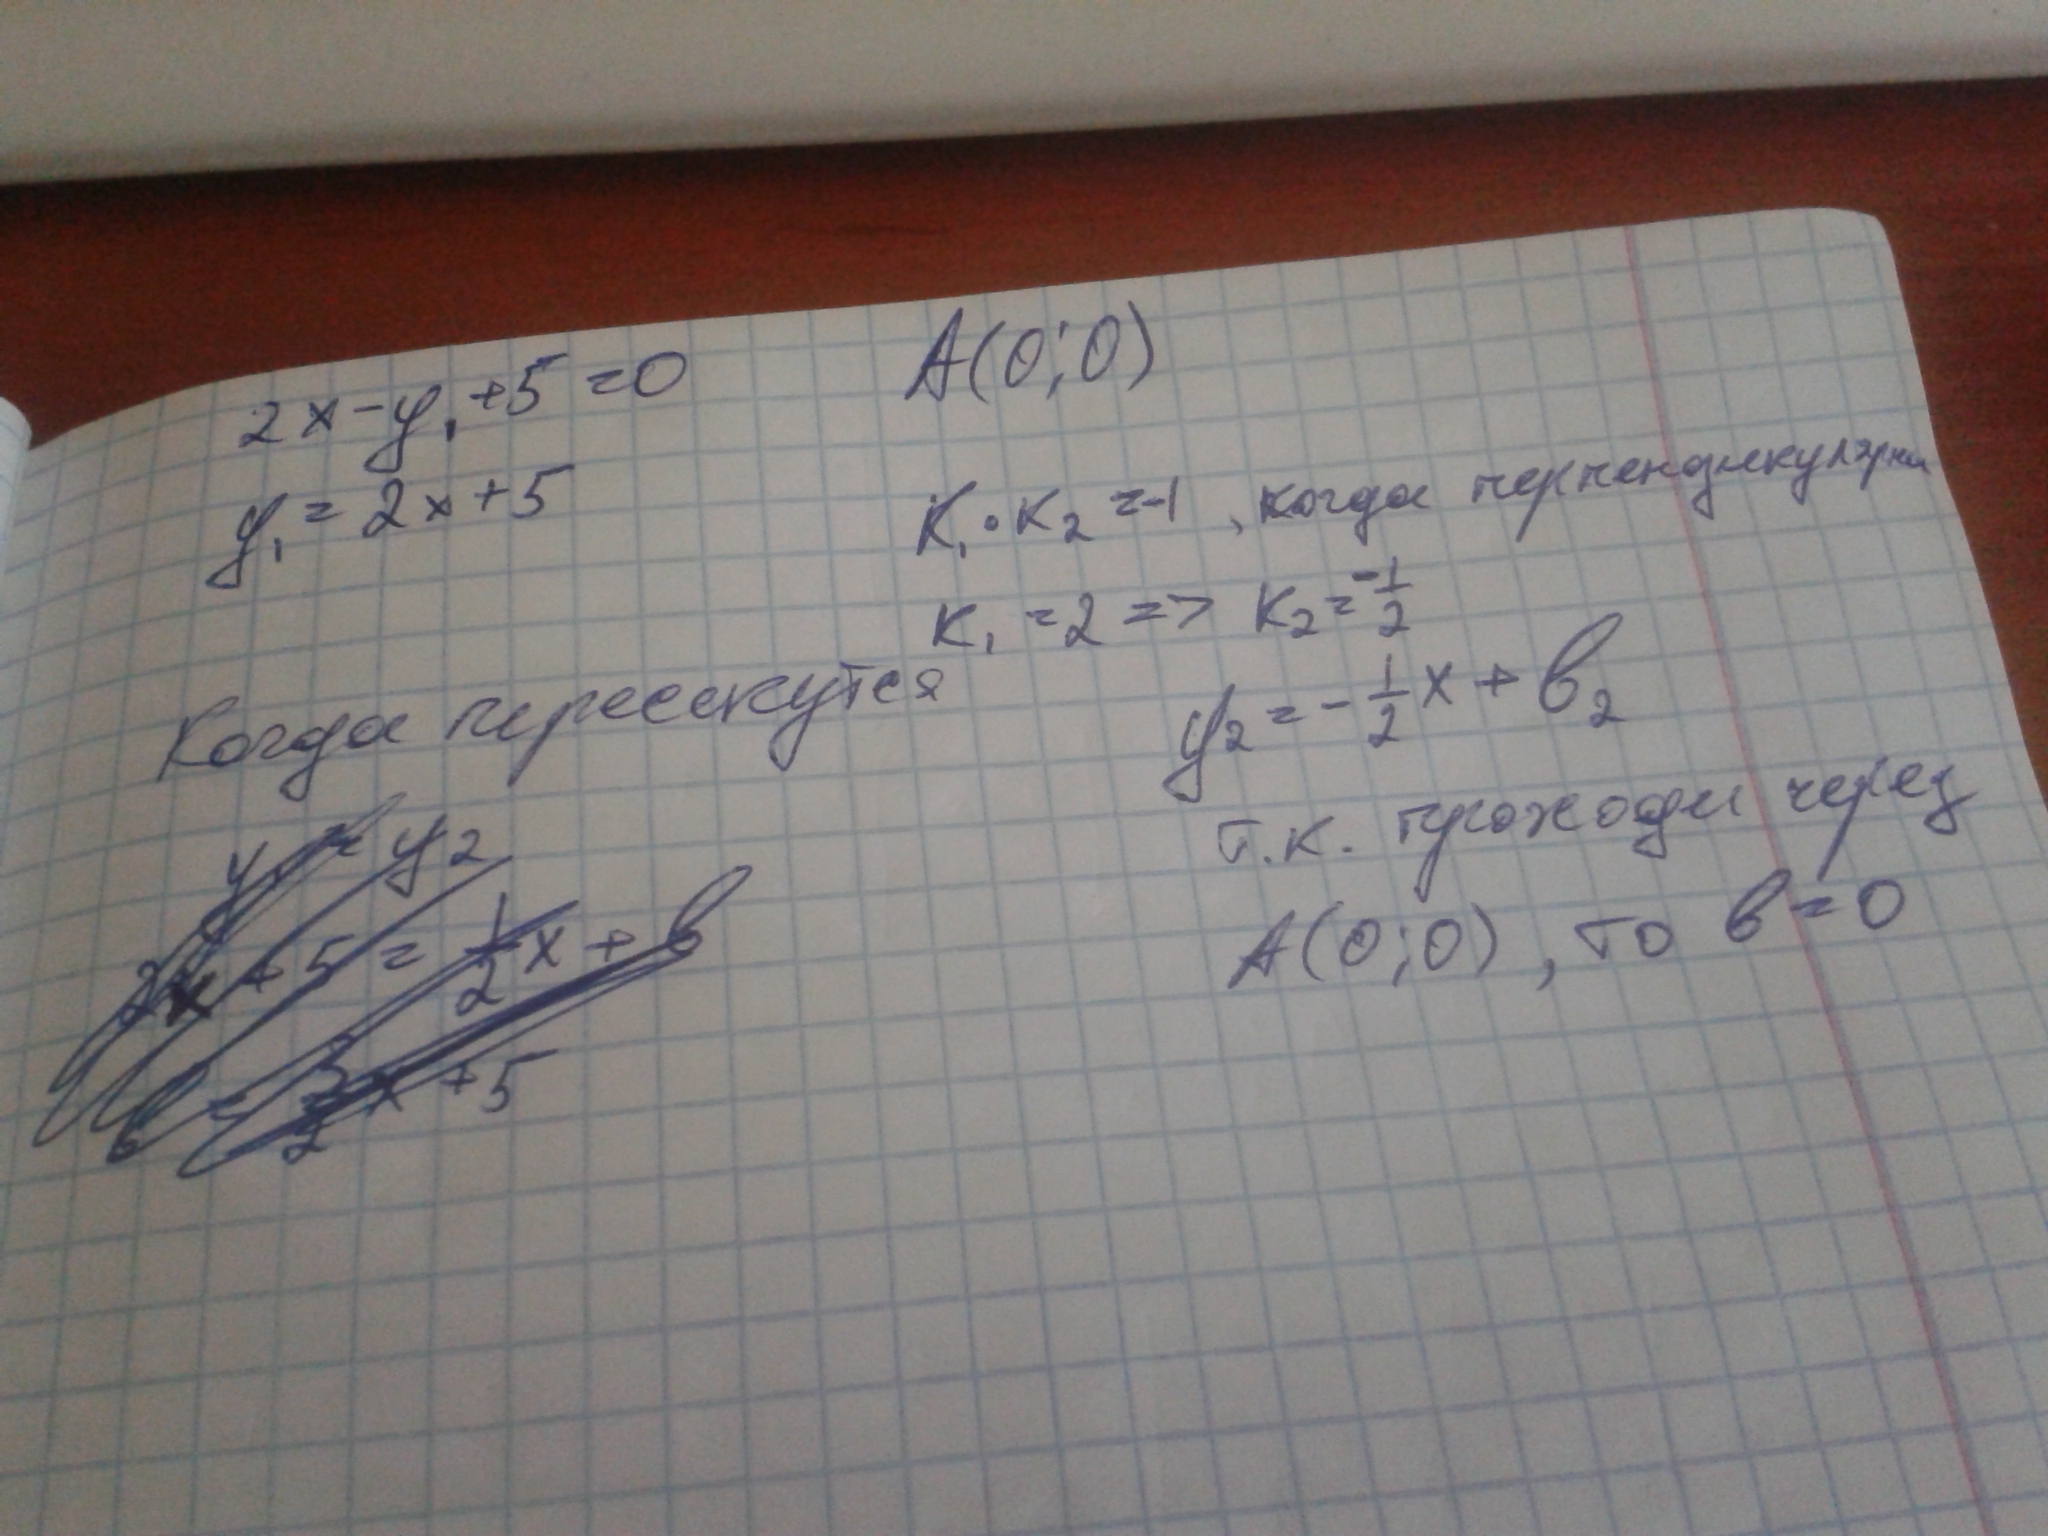 2x-y₁+5=0
y₁=2x+5
Когда пересекутся
y₁=y₂
2x+5=½x+в
в=3/2x+5
A(0;0)
K₁·K₂=-1, когда перпендикулярны
K₁=2=>K₂=-½
y₂=-½x+в₂
т.к. проходи через
A(0;0), то в=0